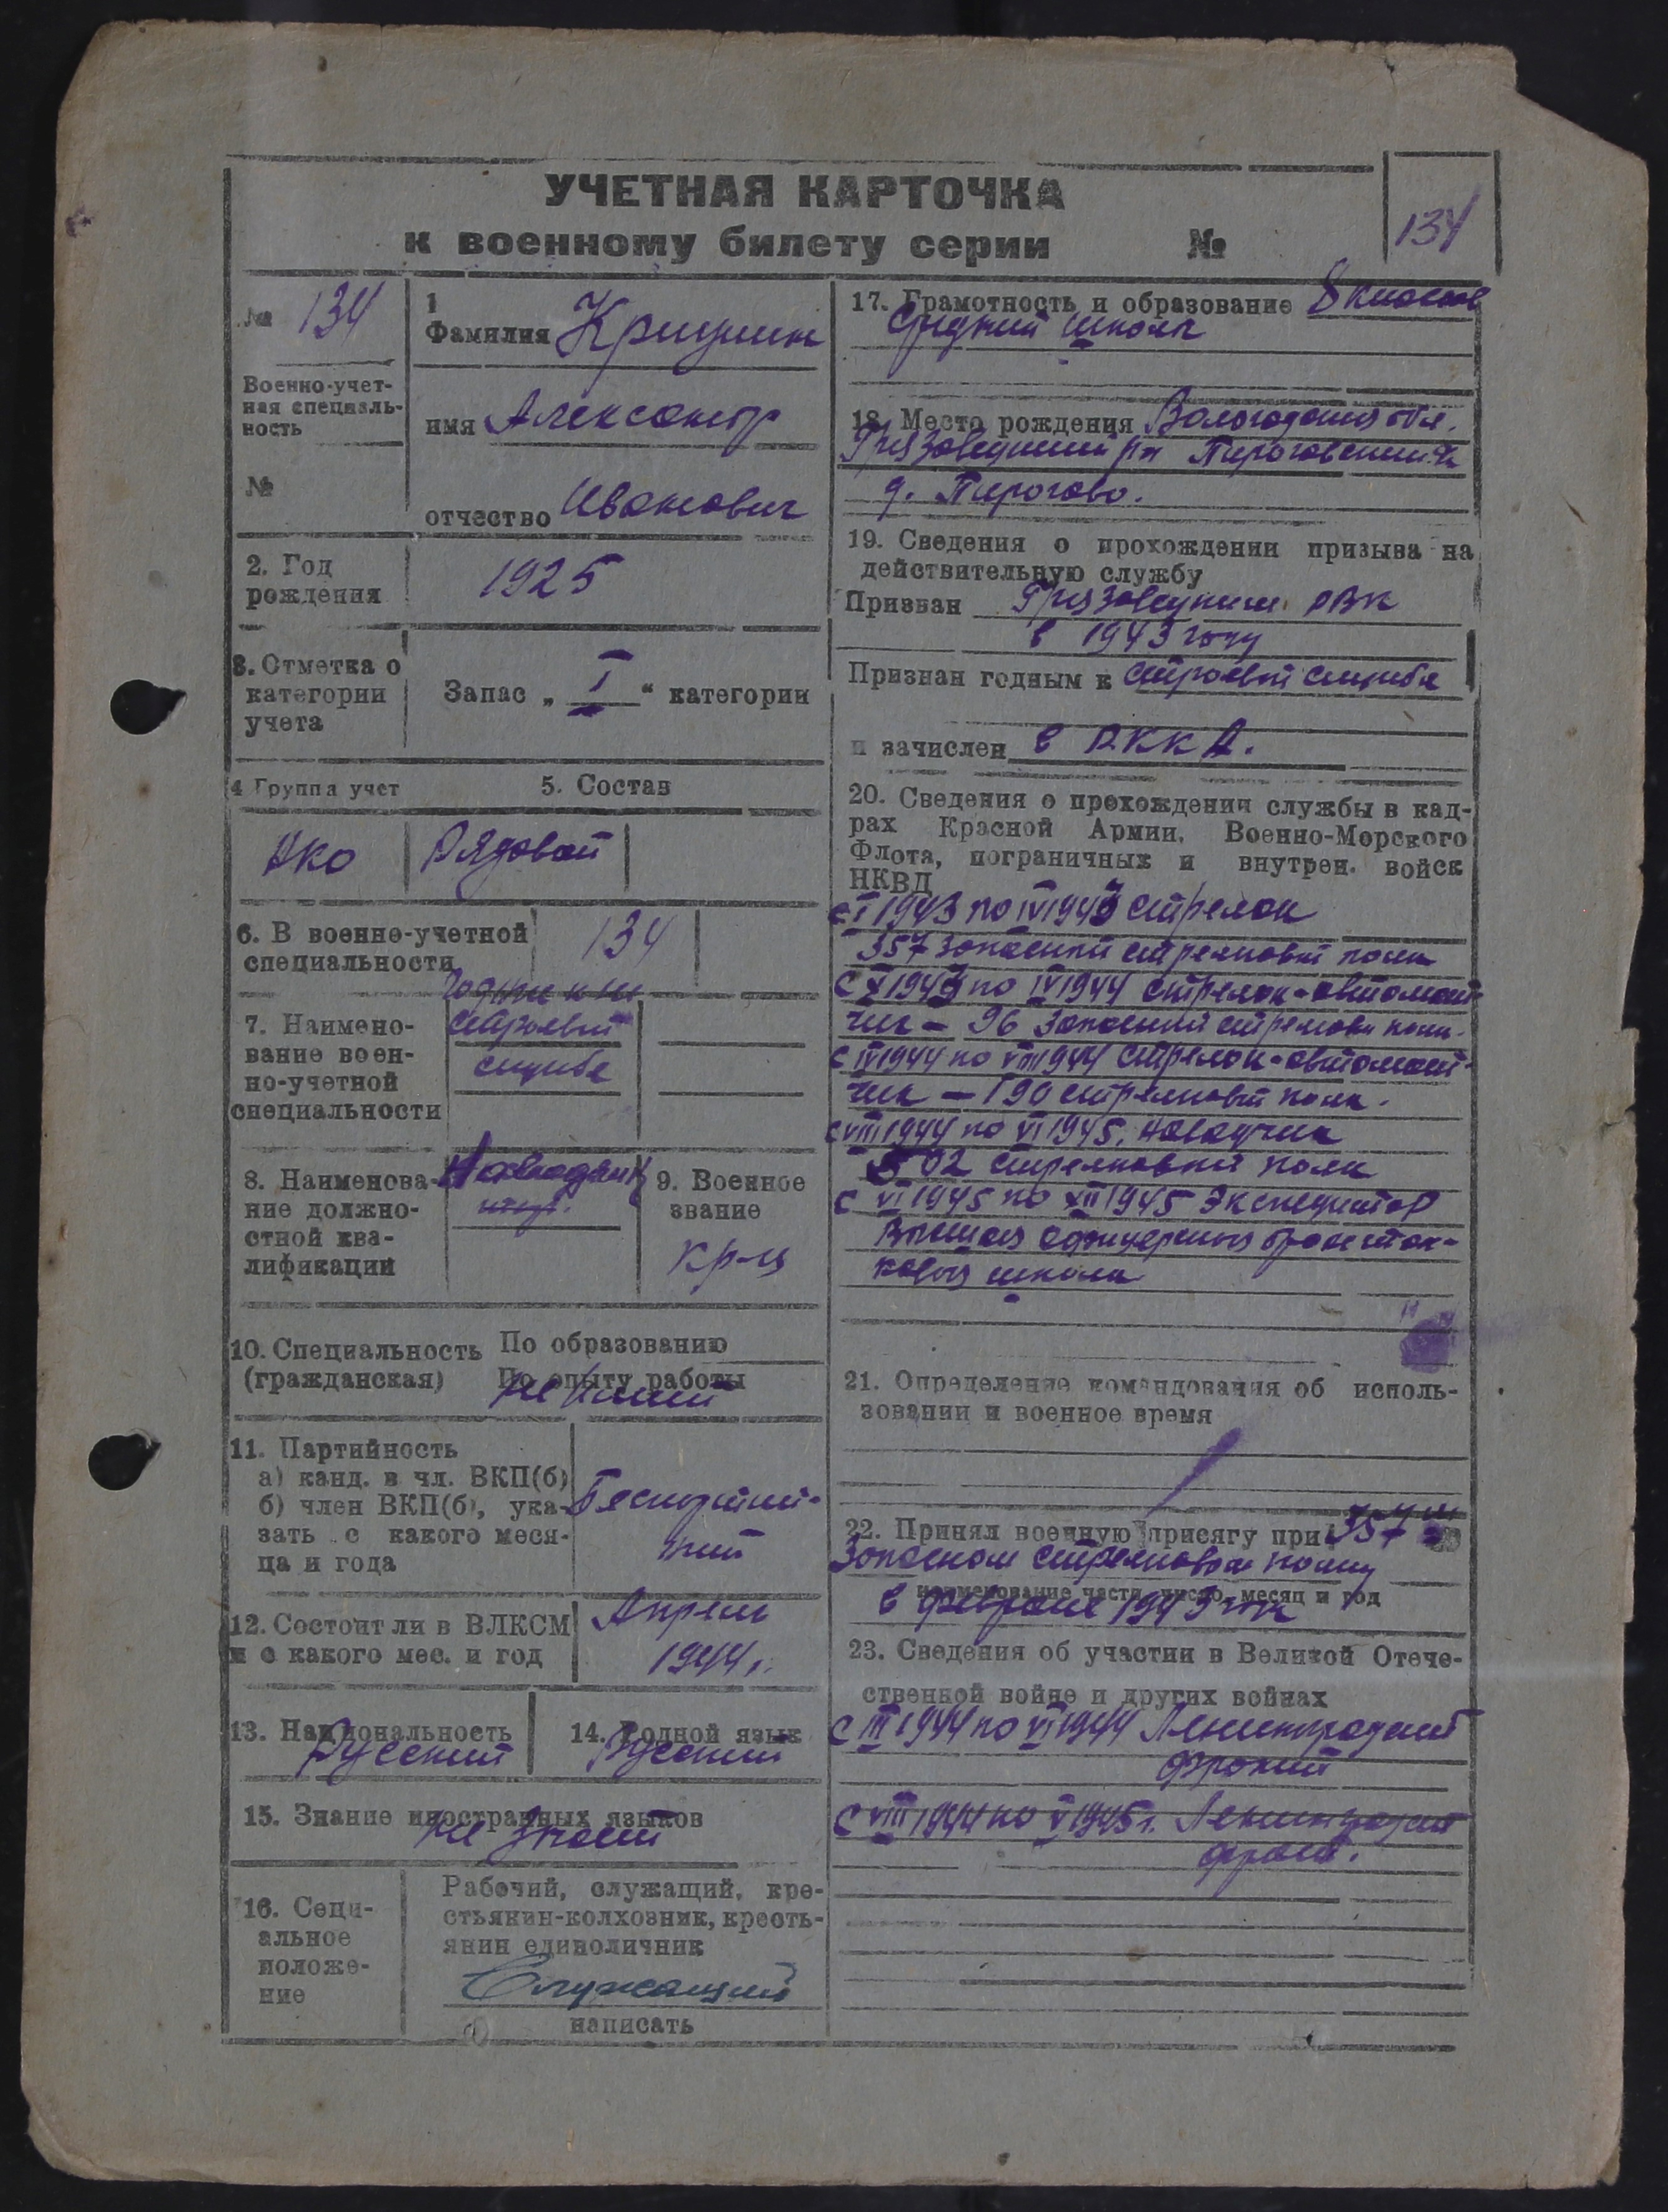 УЧЕТНАЯ КАРТОЧКА
к военному билету серии №
134
№ 134
Военно-учет-
ная специаль-
ность
№
1
Фамилия
имя Александр
отчество Иванович
2. Год
рождения
1925
3. Отметка о
категории
учета
Запас „ I “ категории
4 Группа учет
5. Состав
Рядовой
6. В военно-учетной
специальности
134
7. Наимено-
вание воен-
но-учетной
специальности
строевой
службе
8. Наименова-
ние должно-
стной ква-
лификации
9. Военное
звание
кр-ц
10. Специальность
(гражданская)
По образованию
По опыту работы
Не имеет
11. Партийность
а) канд. в чл. ВКП(б)
б) член ВКП(б), ука-
зать с какого меся-
ца и года
Беспартий-
ный
12. Состоит ли в ВЛКСМ
и с какого мес. и год
Апрель
1944 г.
13. Национальность
Русский
14. Родной язык
Русский
15. Знание иностранных языков
не знает
16. Соци-
альное
положе-
ние
Рабочий, служащий, кре-
стьянин-колхозник, кресть-
янин единоличник
Служащий
написать
17. Грамотность и образование 8 классов
Средний школы
18. Место рождения Вологодская обл.
Грязовецкий р-н Пироговский
д. Пирогово.
19. Сведения о прохождении призыва на
действительную службу
Призван Грязовецким РВК
в 1943 году
Признан годным к строевой службе
и зачислен в РККА.
20. Сведения о прохождении службы в кад-
рах Красной Армии, Военно-Морского
Флота, пограничных и внутрен. войск
НКВД
с I 1943 по IV 1943 стрелок
357 запасный стрелковый полк
с V 1943 по IV 1944 стрелок-автомат-
чик – 96 запасный стрелковый полк.
с IV 1944 по VIII 1944 стрелок-автомат-
чик – 190 стрелковый полк.
с VIII 1944 по VI 1945. наводчик
502 стрелковый полк
с VI 1945 по XII 1945 Экспедитор
Высшая офицерская бронетан-
ковая школа
21. Определение командования об исполь-
зовании и военное время
22. Принял военную присягу при 357
Запасном стрелковом полку
наименование части, число, месяц и год
в феврале 1943 года
23. Сведения об участии в Великой Отече-
ственной войне и других войнах
с III 1944 по VI 1944 Ленинградский
фронт
с VIII 1944 по V 1945 г. Ленинградский
фронт.